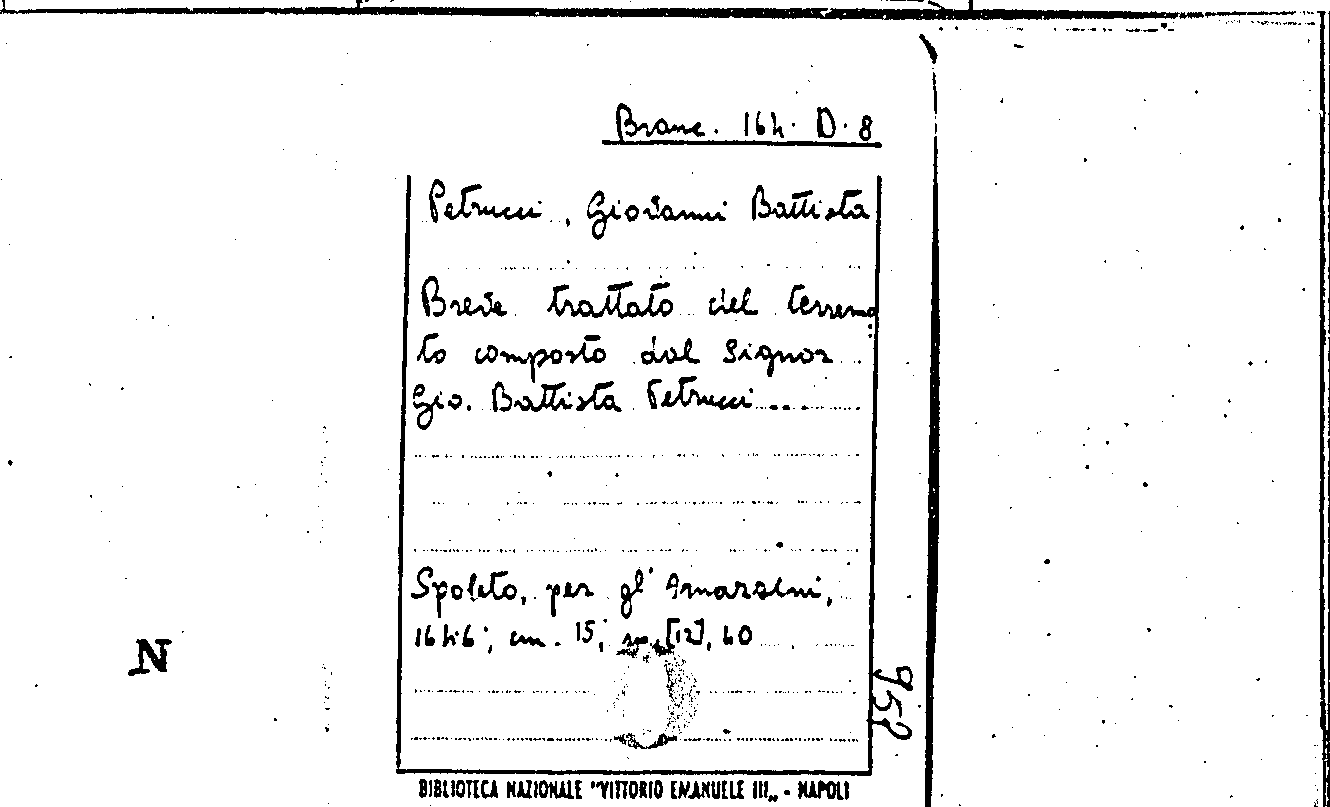 Branc. 164. D. 8
Petrucci, Giovanni Battista
Breve trattato del terremo
to composto dal Signor
Gio. Battista Petrucci ...
Spoleto, per gl'
1646; cm. 15; [12], 40
N
958
BIBLIOTECA NAZIONALE "VITTORIO EMANUELE III„ - NAPOLI